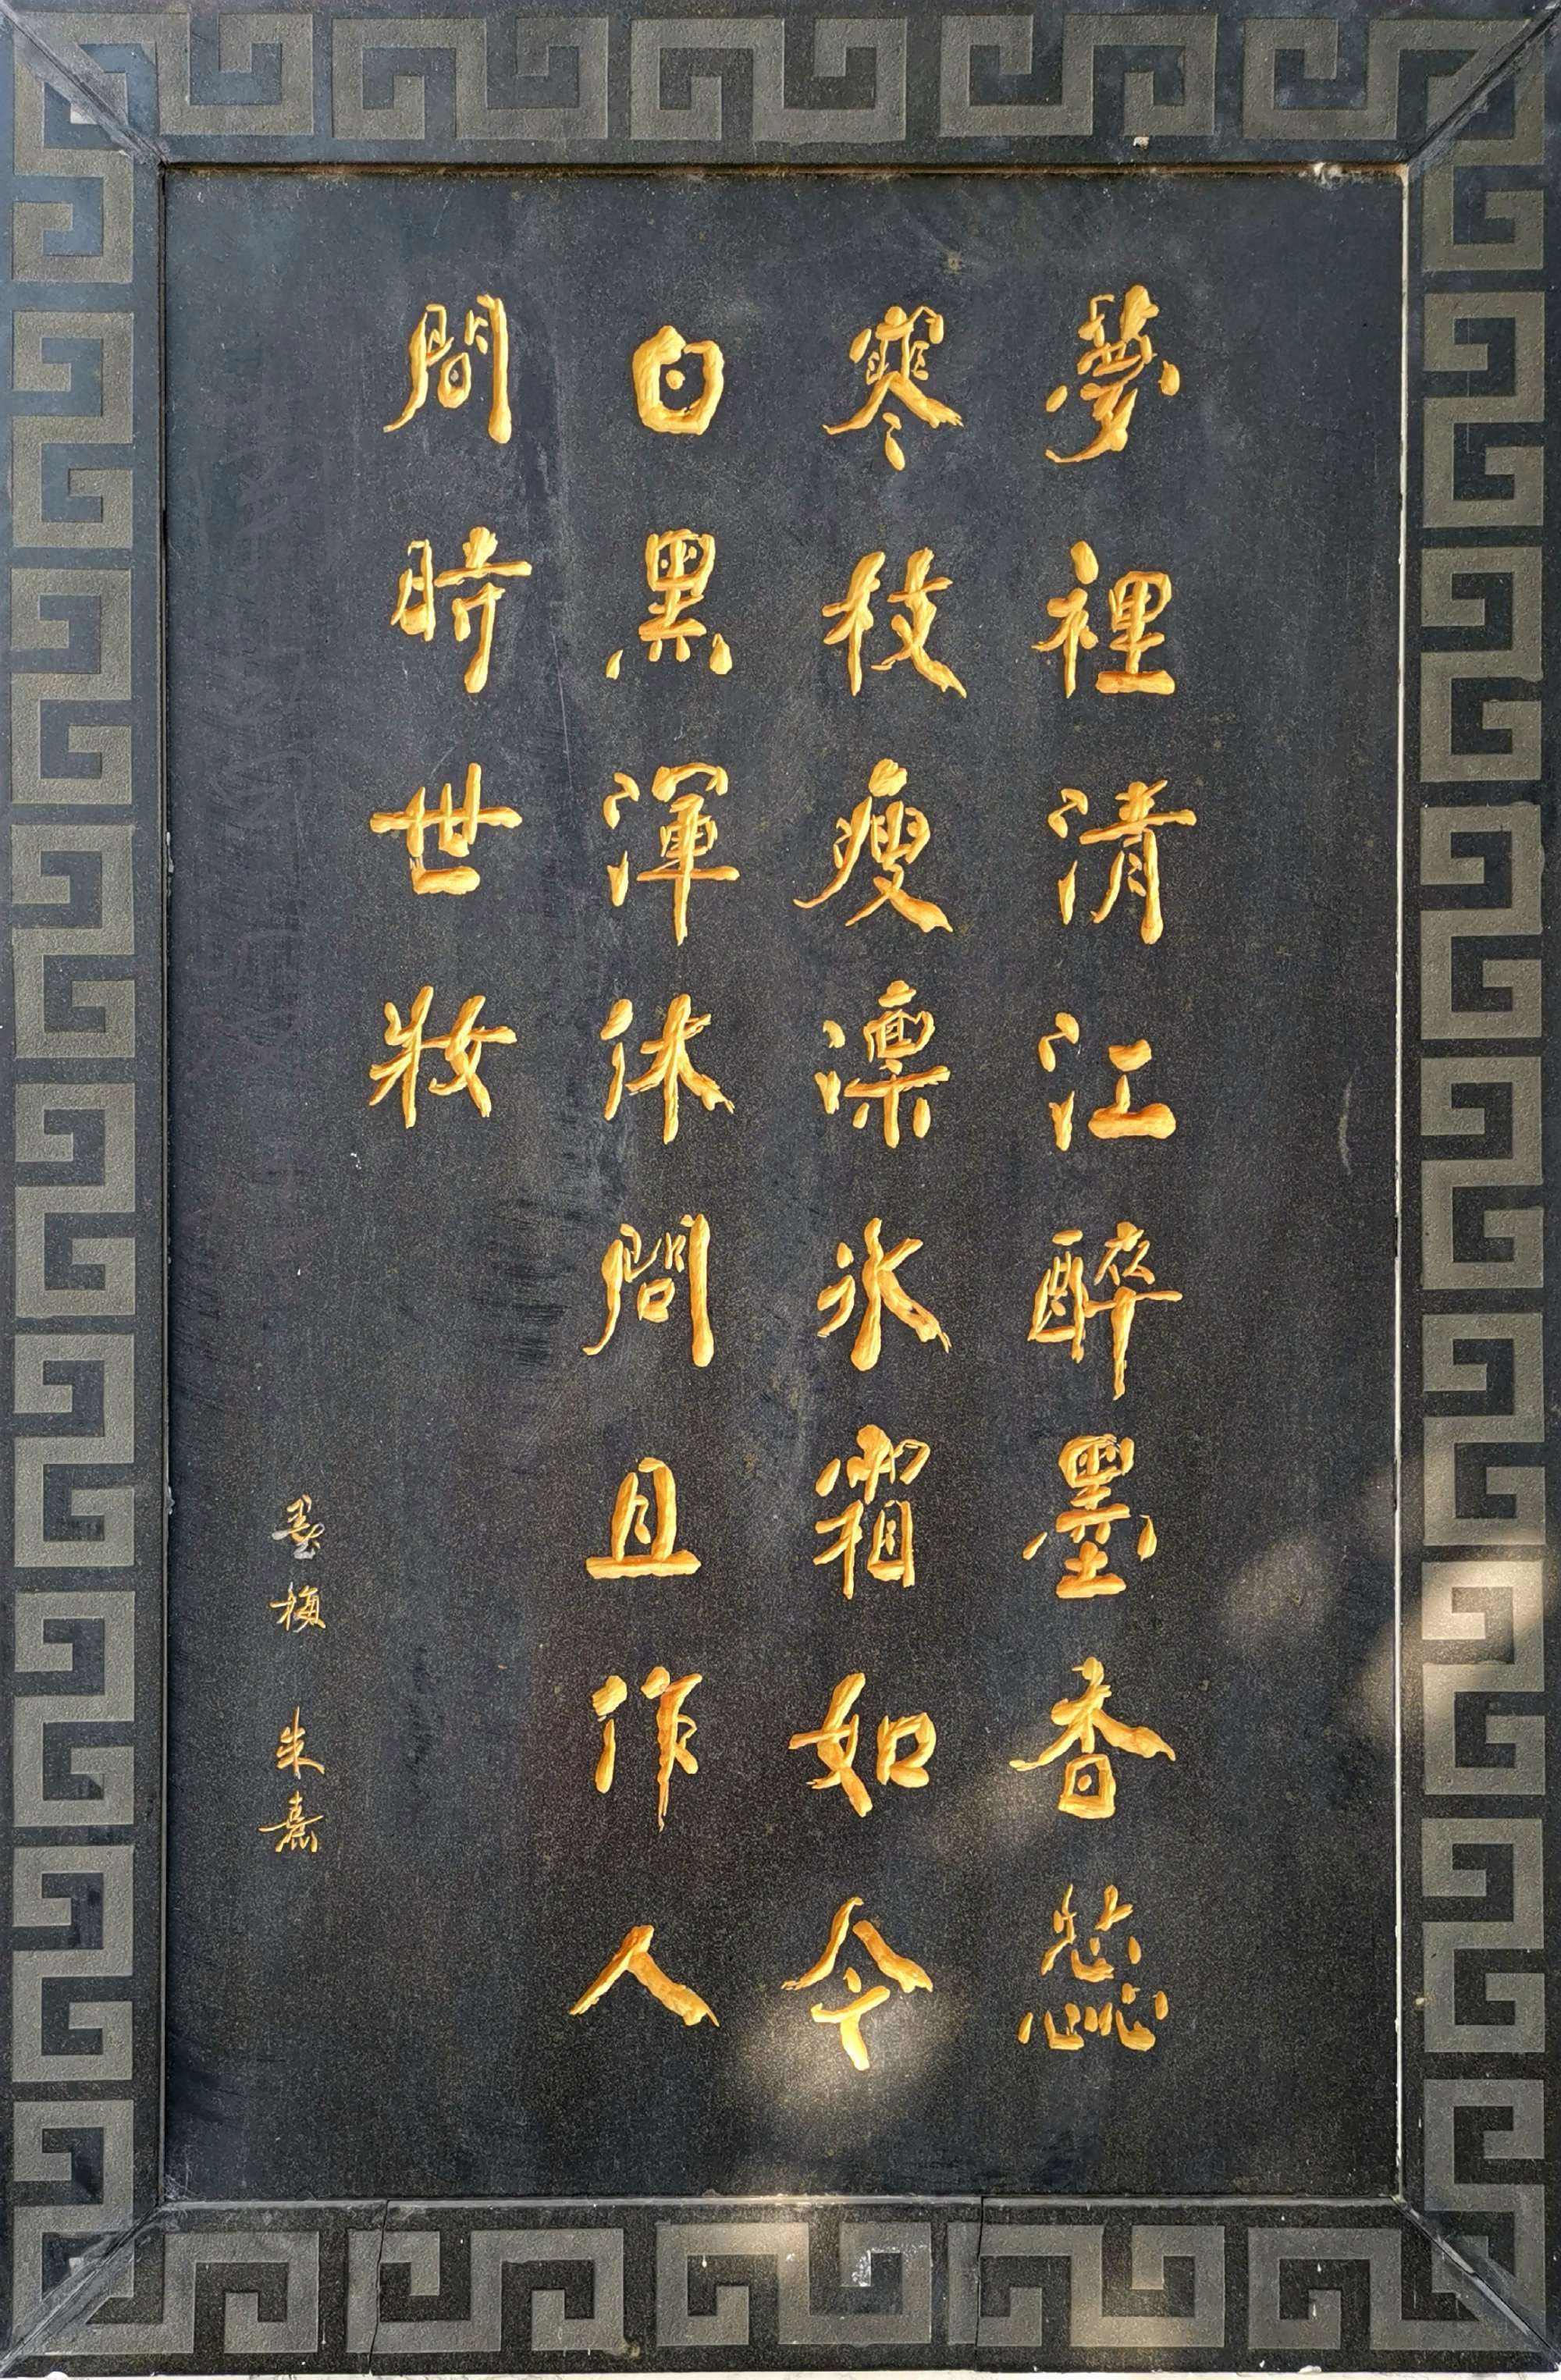 夢裡清江醉墨香蕊
寒枝瘦凛冰霜如今
白黑渾休問且作人
間時世妝
墨梅 朱熹